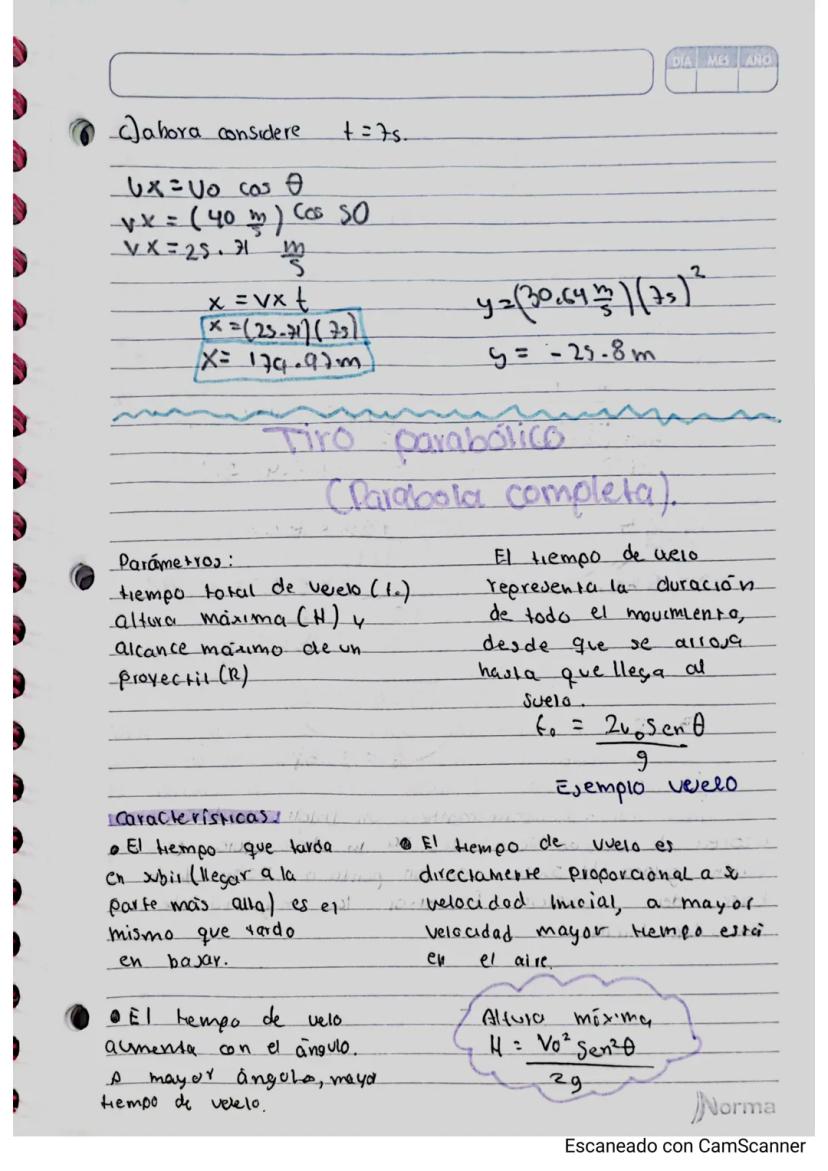 DÍA MES AÑO
c) ahora considere t = 7s.
Vx = Vo cos θ
Vx = (40 m/s) cos 50
Vx = 25.71 m/s
x = vx t
x = (25.71)(7s)
x = 179.97m
y = (30.64 m/s)(7s)²
y = -25.8m
Tiro parabólico
(Parabola completa).
Parámetros:
tiempo total de vuelo (t.)
altura máxima (H) y
alcance máximo de un
proyectil (R)
El tiempo de uelo
representa la duración
de todo el movimiento,
desde que se arroja
hasta que llega al
suelo.
t₀ = 2v₀ Sen θ / g
Ejemplo vuelo
Características:
• El tiempo que tarda
en subir (llegar a la
parte más alta) es el
mismo que tardo
en bajar.
• El tiempo de vuelo es
directamente proporcional a
velocidad inicial, a mayor
velocidad mayor tiempo está
en el aire.
• El tiempo de velo
aumenta con el ángulo.
A mayor ángulo, mayor
tiempo de vuelo.
Altura máxima
H = Vo² Sen²θ / 2g
Norma
Escaneado con CamScanner